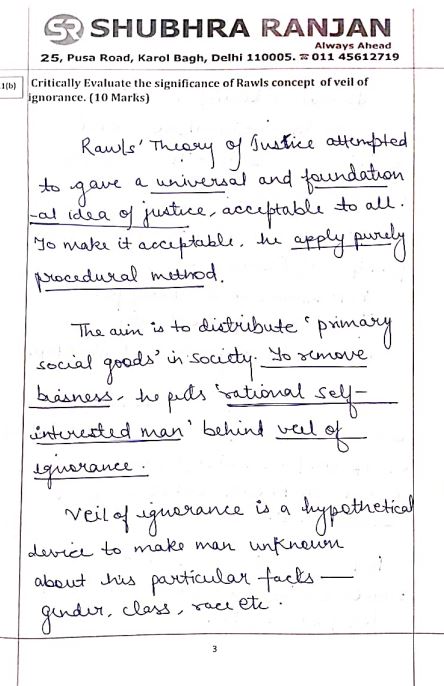 SR SHUBHRA RANJAN
Always Ahead
25, Pusa Road, Karol Bagh, Delhi 110005. ☎ 011 45612719
1(b) Critically Evaluate the significance of Rawls concept of veil of
ignorance. (10 Marks)
Rawls' Theory of Justice attempted
to gave a universal and foundation
-al idea of justice, acceptable to all.
To make it acceptable, he apply purely
procedural method.
The aim is to distribute 'primary
social goods' in society. To remove
biasness, he puts 'rational self-
interested man' behind veil of
ignorance.
Veil of ignorance is a hypothetical
device to make man unknown
about his particular facts —
gender, class, race etc.
3